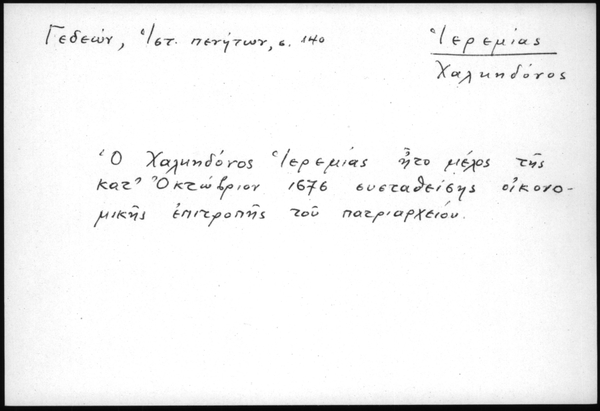 Γεδεών, Ἱστ. πενήτων, σ. 140
Ἱερεμίας
Χαλκηδόνος
Ὁ Χαλκηδόνος Ἱερεμίας ἦτο μέλος τῆς
κατ' Ὀκτώβριον 1676 συσταθείσης οἰκονο-
μικῆς ἐπιτροπῆς τοῦ πατριαρχείου.